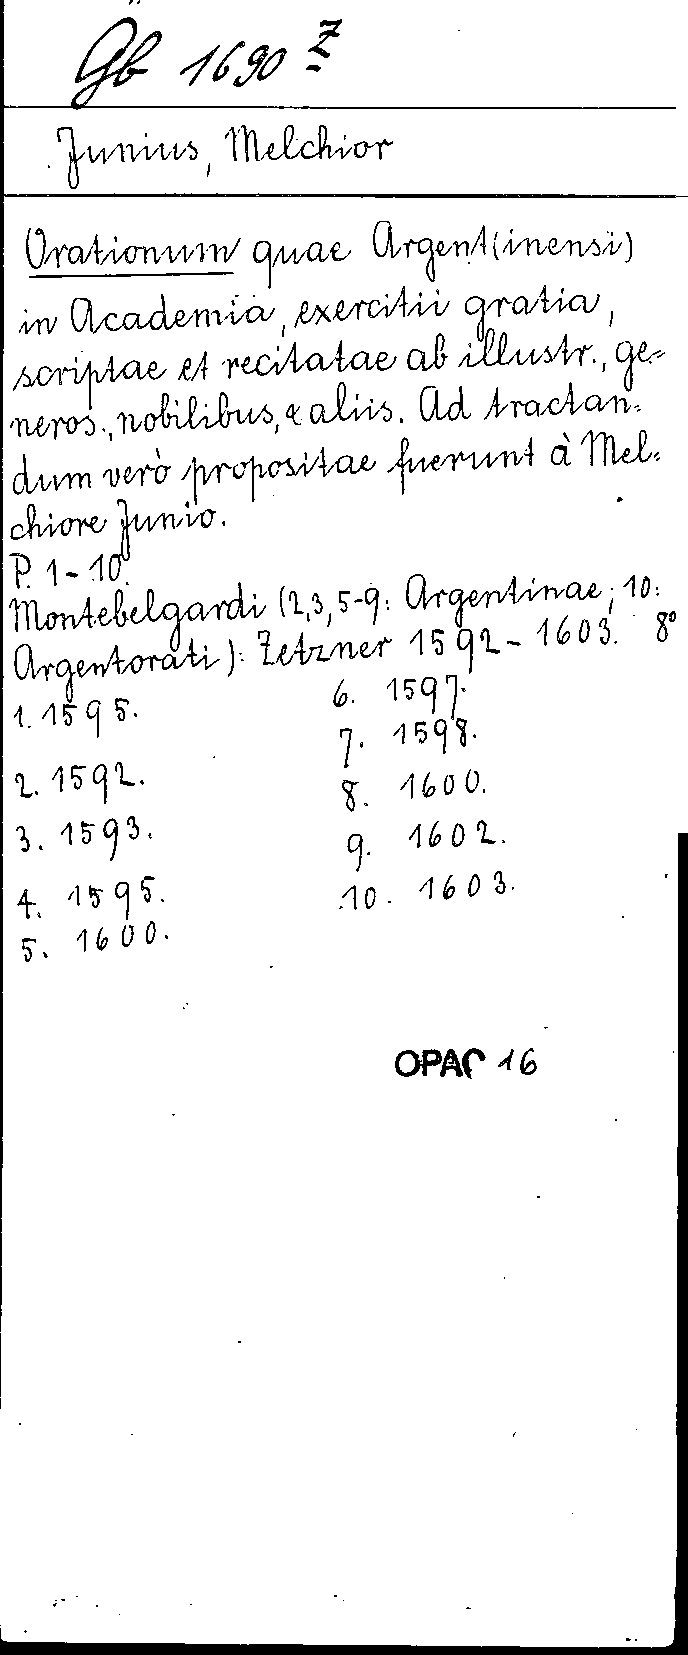 Gb 1690 z
Junius, Melchior
Orationum quae Argent(inensi)
in Academia, exercitii gratia,
scriptae et recitatae ab illustr., ge-
neros., nobilibus, & aliis. Ad tractan-
dum verò propositae fuerunt à Mel-
chiore Junio.
P. 1-10.
Montebelgardi (2,3,5-9: Argentinae; 10:
Argentorati): Zetzner 1592-1603. 8°
1. 1595.
2. 1592.
3. 1593.
4. 1595.
5. 1600.
6. 1597.
7. 1598.
8. 1600.
9. 1602.
10. 1603.
OPAC 16